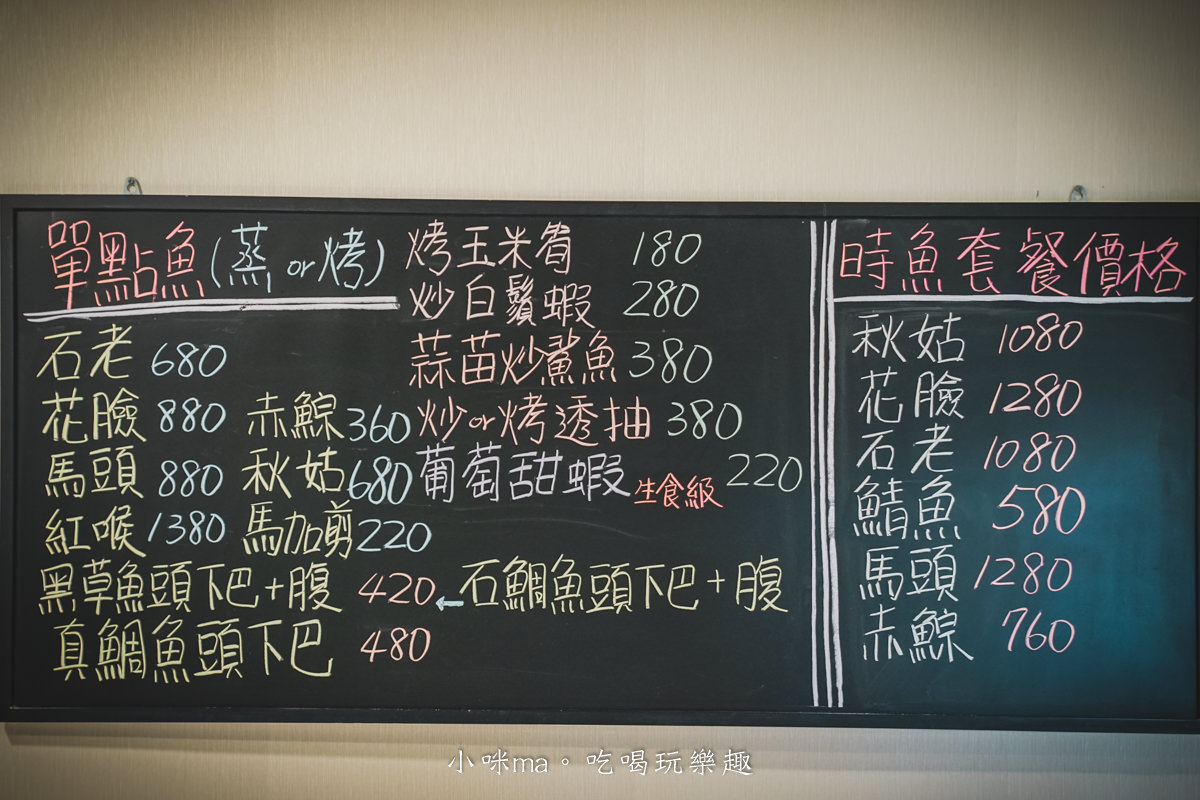 單點魚(蒸or烤)
石老 680
花臉 880 赤鯮 360
馬頭 880 秋姑 680
紅喉 1380 馬加剪 220
黑草魚頭下巴+腹 420 ← 石鯛魚頭下巴+腹
真鯛魚頭下巴 480
烤玉米筍 180
炒白鬚蝦 280
蒜苗炒鯊魚 380
炒or烤透抽 380
葡萄甜蝦 生食級 220
時魚套餐價格
秋姑 1080
花臉 1280
石老 1080
鯖魚 580
馬頭 1280
赤鯮 760
小咪ma。吃喝玩樂趣